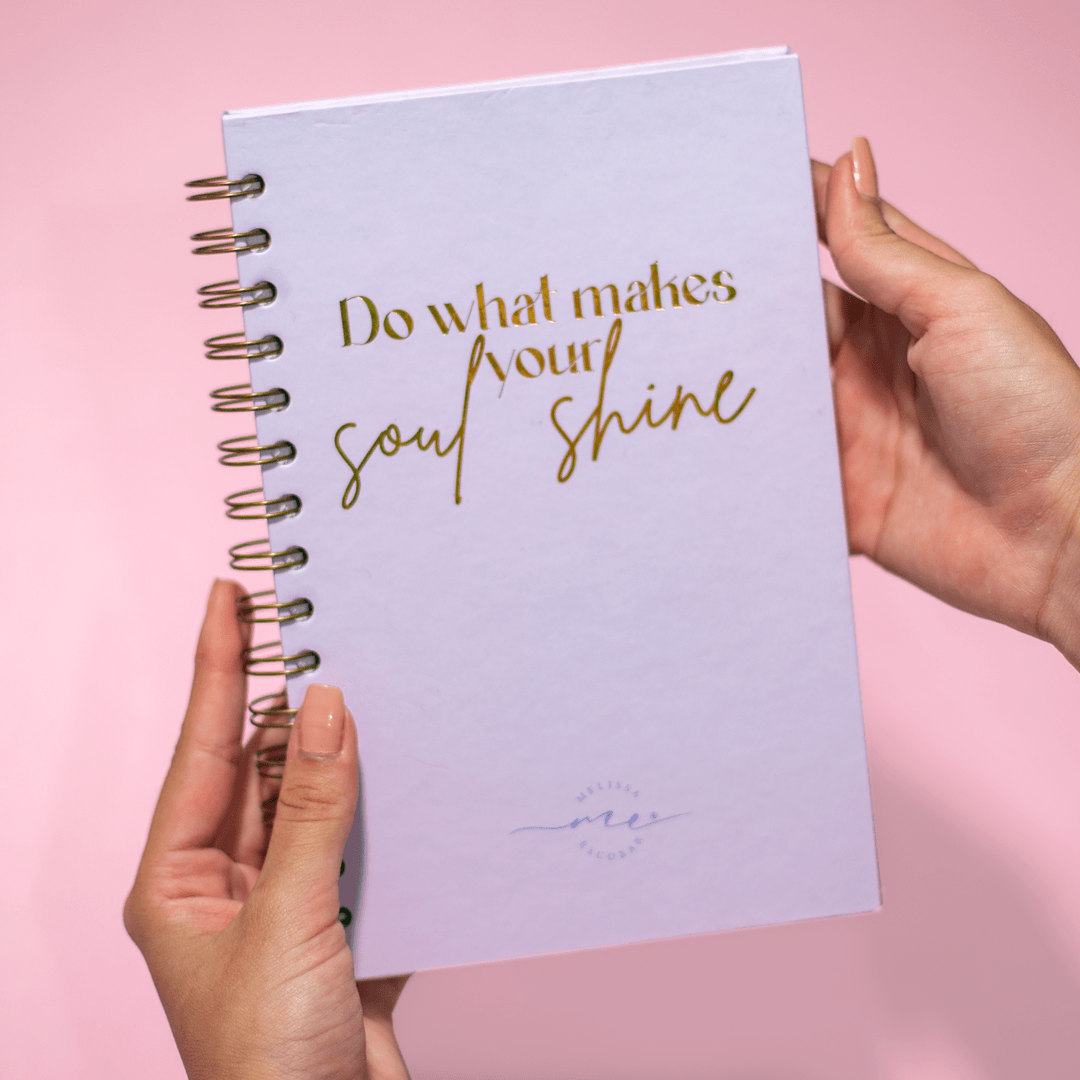 Do what makes
your
soul shine
MELISSA
me®
ESCOBAR